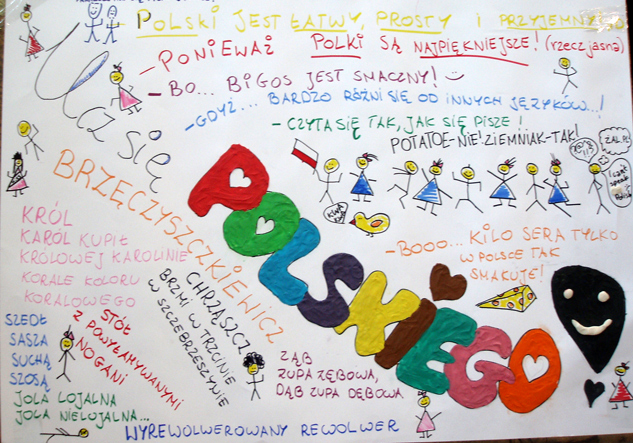 POLSKI JEST ŁATWY, PROSTY i PRZYJEMNY
- PONIEWAŻ POLKI SĄ NAJPIĘKNIEJSZE! (rzecz jasna)
- BO... BIGOS JEST SMACZNY!
- GDYŻ... BARDZO RÓŻNI SIĘ OD INNYCH JĘZYKÓW...!
- CZYTA SIĘ TAK, JAK SIĘ PISZE!
POTATOE - NIE! ZIEMNIAK - TAK!
Ucz się
POLSKIEGO
BRZĘCZYSZCZKIEWICZ
KRÓL
KAROL KUPIŁ
KRÓLOWEJ KAROLINIE
KORALE KOLORU
KORALOWEGO
CHRZĄSZCZ
BRZMI W TRZCINIE
W SZCZEBRZESZYNIE
STÓŁ
Z POWYŁAMYWANYMI
NOGAMI
SZEDŁ
SASZA
SUCHĄ
SZOSĄ
JOLA LOJALNA
JOLA NIELOJALNA...
ZĄB
ZUPA ZĘBOWA,
DĄB ZUPA DĘBOWA.
WYREWOLWEROWANY REWOLWER
- BOOO... KILO SERA TYLKO
W POLSCE TAK
SMAKUJE!
KWA
KWA